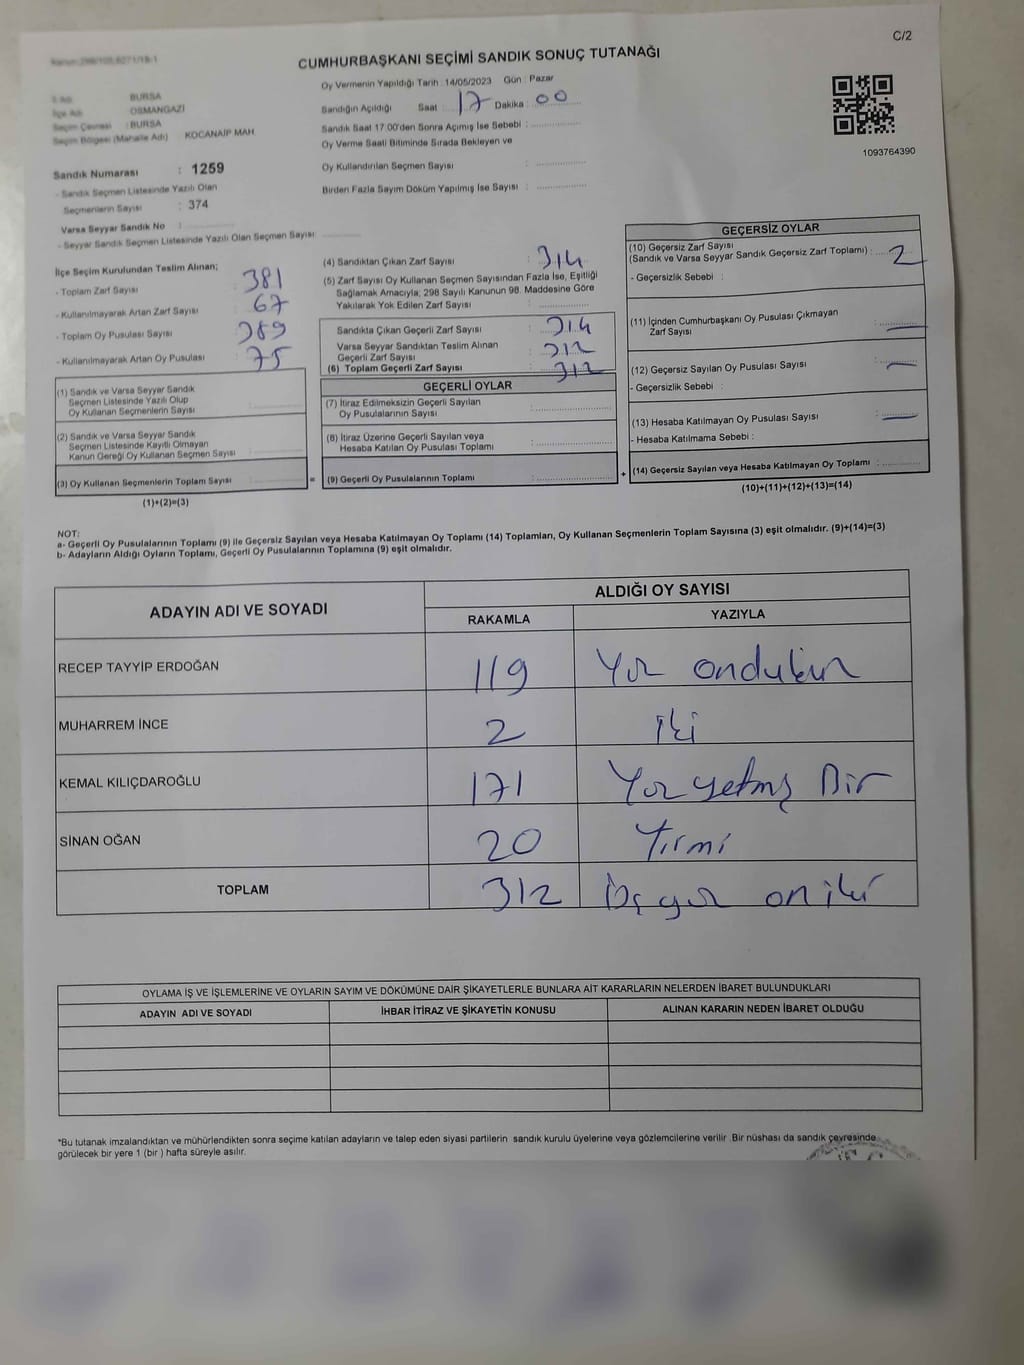 C/2
CUMHURBAŞKANI SEÇİMİ SANDIK SONUÇ TUTANAĞI
Oy Vermenin Yapıldığı Tarih : 14/05/2023 Gün : Pazar
Sandığın Açıldığı Saat : 17 Dakika : 00
Sandık Saat 17:00'den Sonra Açımış İse Sebebi :
Oy Verme Saati Bitiminde Sırada Bekleyen ve
Oy Kullandırılan Seçmen Sayısı :
Birden Fazla Sayım Döküm Yapılmış İse Sayısı :
1093764390
İl Adı : BURSA
İlçe Adı : OSMANGAZİ
Seçim Çevresi : BURSA
Seçim Bölgesi (Mahalle Adı) : KOCANAİP MAH
Sandık Numarası : 1259
- Sandık Seçmen Listesinde Yazılı Olan
Seçmenlerin Sayısı : 374
Varsa Seyyar Sandık No :
- Seyyar Sandık Seçmen Listesinde Yazılı Olan Seçmen Sayısı:
İlçe Seçim Kurulundan Teslim Alınan;
- Toplam Zarf Sayısı : 381
- Kullanılmayarak Artan Zarf Sayısı : 67
- Toplam Oy Pusulası Sayısı : 389
- Kullanılmayarak Artan Oy Pusulası : 75
(1) Sandık ve Varsa Seyyar Sandık
Seçmen Listesinde Yazılı Olup
Oy Kullanan Seçmenlerin Sayısı :
(2) Sandık ve Varsa Seyyar Sandık
Seçmen Listesinde Kayıtlı Olmayan
Kanun Gereği Oy Kullanan Seçmen Sayısı :
(3) Oy Kullanan Seçmenlerin Toplam Sayısı :
(1)+(2)=(3)
(4) Sandıktan Çıkan Zarf Sayısı : 314
(5) Zarf Sayısı Oy Kullanan Seçmen Sayısından Fazla İse, Eşitliği
Sağlamak Amacıyla; 298 Sayılı Kanunun 98. Maddesine Göre
Yakılarak Yok Edilen Zarf Sayısı :
Sandıkta Çıkan Geçerli Zarf Sayısı : 314
Varsa Seyyar Sandıktan Teslim Alınan
Geçerli Zarf Sayısı : 312
(6) Toplam Geçerli Zarf Sayısı : 312
GEÇERLİ OYLAR
(7) İtiraz Edilmeksizin Geçerli Sayılan
Oy Pusulalarının Sayısı :
(8) İtiraz Üzerine Geçerli Sayılan veya
Hesaba Katılan Oy Pusulası Toplamı :
= (9) Geçerli Oy Pusulalarının Toplamı : +
GEÇERSİZ OYLAR
(10) Geçersiz Zarf Sayısı
(Sandık ve Varsa Seyyar Sandık Geçersiz Zarf Toplamı) : 2
- Geçersizlik Sebebi :
(11) İçinden Cumhurbaşkanı Oy Pusulası Çıkmayan
Zarf Sayısı : —
(12) Geçersiz Sayılan Oy Pusulası Sayısı : —
- Geçersizlik Sebebi :
(13) Hesaba Katılmayan Oy Pusulası Sayısı : —
- Hesaba Katılmama Sebebi :
(14) Geçersiz Sayılan veya Hesaba Katılmayan Oy Toplamı :
(10)+(11)+(12)+(13)=(14)
NOT:
a- Geçerli Oy Pusulalarının Toplamı (9) ile Geçersiz Sayılan veya Hesaba Katılmayan Oy Toplamı (14) Toplamları, Oy Kullanan Seçmenlerin Toplam Sayısına (3) eşit olmalıdır. (9)+(14)=(3)
b- Adayların Aldığı Oyların Toplamı, Geçerli Oy Pusulalarının Toplamına (9) eşit olmalıdır.
ADAYIN ADI VE SOYADI
ALDIĞI OY SAYISI
RAKAMLA YAZIYLA
RECEP TAYYİP ERDOĞAN 119 Yüz ondukuz
MUHARREM İNCE 2 iki
KEMAL KILIÇDAROĞLU 171 Yüz yetmiş Bir
SİNAN OĞAN 20 Yirmi
TOPLAM 312 üçyüz oniki
OYLAMA İŞ VE İŞLEMLERİNE VE OYLARIN SAYIM VE DÖKÜMÜNE DAİR ŞİKAYETLERLE BUNLARA AİT KARARLARIN NELERDEN İBARET BULUNDUKLARI
ADAYIN ADI VE SOYADI İHBAR İTİRAZ VE ŞİKAYETİN KONUSU ALINAN KARARIN NEDEN İBARET OLDUĞU
*Bu tutanak imzalandıktan ve mühürlendikten sonra seçime katılan adayların ve talep eden siyasi partilerin sandık kurulu üyelerine veya gözlemcilerine verilir. Bir nüshası da sandık çevresinde
görülecek bir yere 1 (bir ) hafta süreyle asılır.